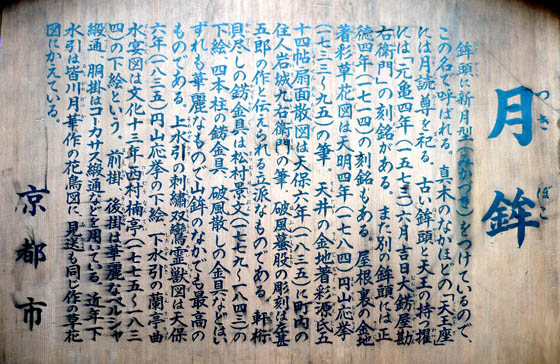 月鉾
つき ほこ
鉾頭に新月型(みかづき)をつけているので、
この名で呼ばれる。真木のなかほどの「天王座」
には月読尊を祀る。古い鉾頭と天王の持つ櫂
には「元亀四年(一五七三)六月吉日大錺屋勘
右衛門」の刻銘がある。また別の鉾頭には正
徳四年(一七一四)の刻銘もある。屋根裏の金地
著彩草花図は天明四年(一七八四)円山応挙
(一七三三〜九五)の筆。天井の金地著彩源氏五
十四帖扇面散図は天保六年(一八三五)に町内の
住人岩城九右衛門の筆。破風蟇股の彫刻は左甚
五郎の作と伝えられる立派なものである。軒桁
貝尽しの錺金具は松村景文(一七七九〜一八四三)の
下絵、四本柱の錺金具、破風散しの金具などはい
ずれも華麗なもので山鉾のなかでも最高の
ものである。上水引の刺繍双鸞霊獣図は天保
六年(一八三五)円山応震の下絵、下水引の蘭亭曲
水宴図は文化十三年西村楠亭(一七七五〜一八三
四)の下絵という。前掛、後掛は華麗なペルシャ
緞通、胴掛はコーカサス緞通などを用いている。近年下
水引は皆川月華作の花鳥図に、見送も同じ作の草花
図にかえている。
京都市